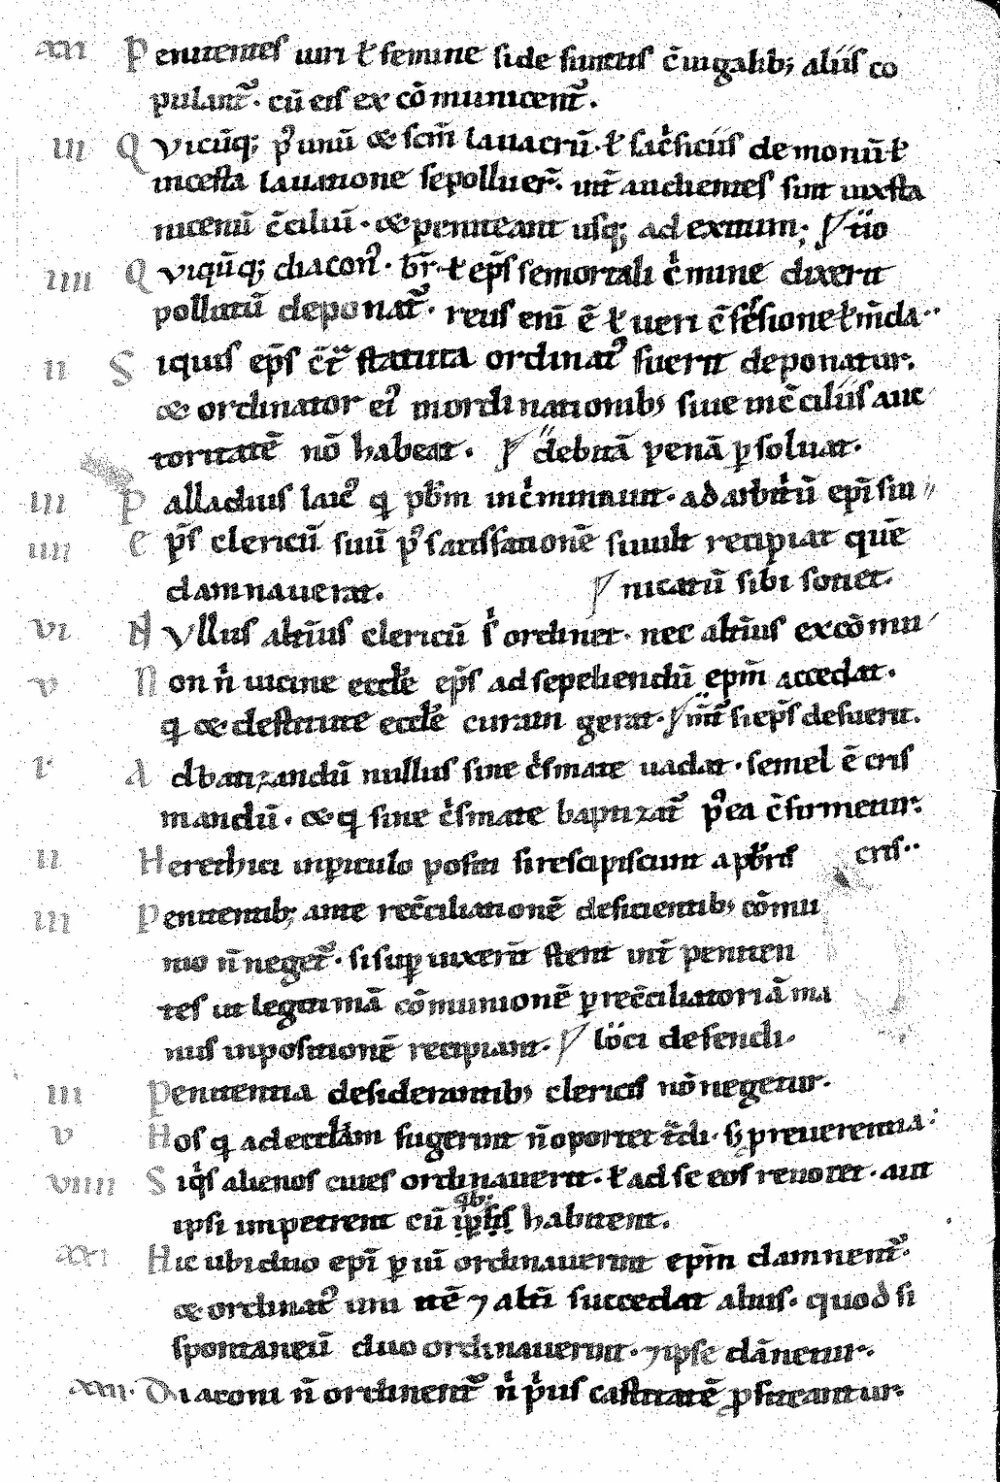 xxi Penitentes uiri ł femine side functis c̄iugalib; aliis co
pulant᷑. cū eis excōmunicent᷑.
iii Qvicūq; p᷒ unū & sc̄m lauacrū. ł sac̓ficiis demoniū ł
incesta lauatione se polluer̄. int̄ audientes sint iuxta
nicenū c̄ciliū. & peniteant usq; ad exitum; tio
iiii Qviqūq; diacon᷒. br̄. ł ep̄s se mortali c̓mine dixerit
pollutū deponat᷑. reus enī ē ł ueri c̄fēsione ł m̄da..
ii Siquis ep̄s c̄t̄ statuta ordinat᷒ fuerit deponatur.
& ordinator ei᷒ in ordinationib; siue in c̄ciliis auc
toritatē nō habeat. debitā penā ꝑsoluat.
iii Palladius laic᷒ q̇ pb̄m inc̓minauit. ad arbit̓ū ep̄i sui
iiii Ep̄s clericū suū p᷒ satisfationē simul recipiat quē
damnauerat. nicatū sibi societ.
vi Nvllus alt̓ius clericū s̓ ordinet. nec alt̓ius excōmu
v Non n̓ uicine eccłe ep̄s ad sepeliendū epm̄ accedat.
q̇ & destitute eccłe curam gerat. int̄ si ep̄s defuerit.
i. Adbatizandū nullus sine c̓smate uadat. semel ē cris
mandū. & q̇ sine c̓smate baptizat᷑ p᷒ea c̄firmetur.
ii Heretici in ꝑiculo positi si rescipiscunt a pb̄ris cris..
iii Penitentib; ante rec̄ciliationē deficientib; cōmu
nio n̄ neget᷑. si suꝑuixerīt stent int̄ peniten
tes ut legitimā cōmunionē ꝑ rec̄ciliatoriā ma
nus inpositionē recipiant. loci defendi.
iii Penitentia desiderantib; clericis nō negetur.
v Hos q̇ ad eccłam fugerint n̄ oportet t̄di. s; ꝑ reuerentia.
viiii Siq̓s alienos ciues ordinauerit. ł ad se eos reuocet. aut
ipsi impetrent cū q̓b; ip̄sis habitent.
xxi Hic ubi duo ep̄i ꝑ iū ordinauerint epm̄ damnent᷑.
& ordinat᷒ uni uē ⁊ altī succedat alius. quod si
spontaneū duo ordinauerint. ⁊ ipse dānetur.
xxii. Diaconi n̄ ordinent᷑ n̓ p̓us castitatē ꝓfiteantur.